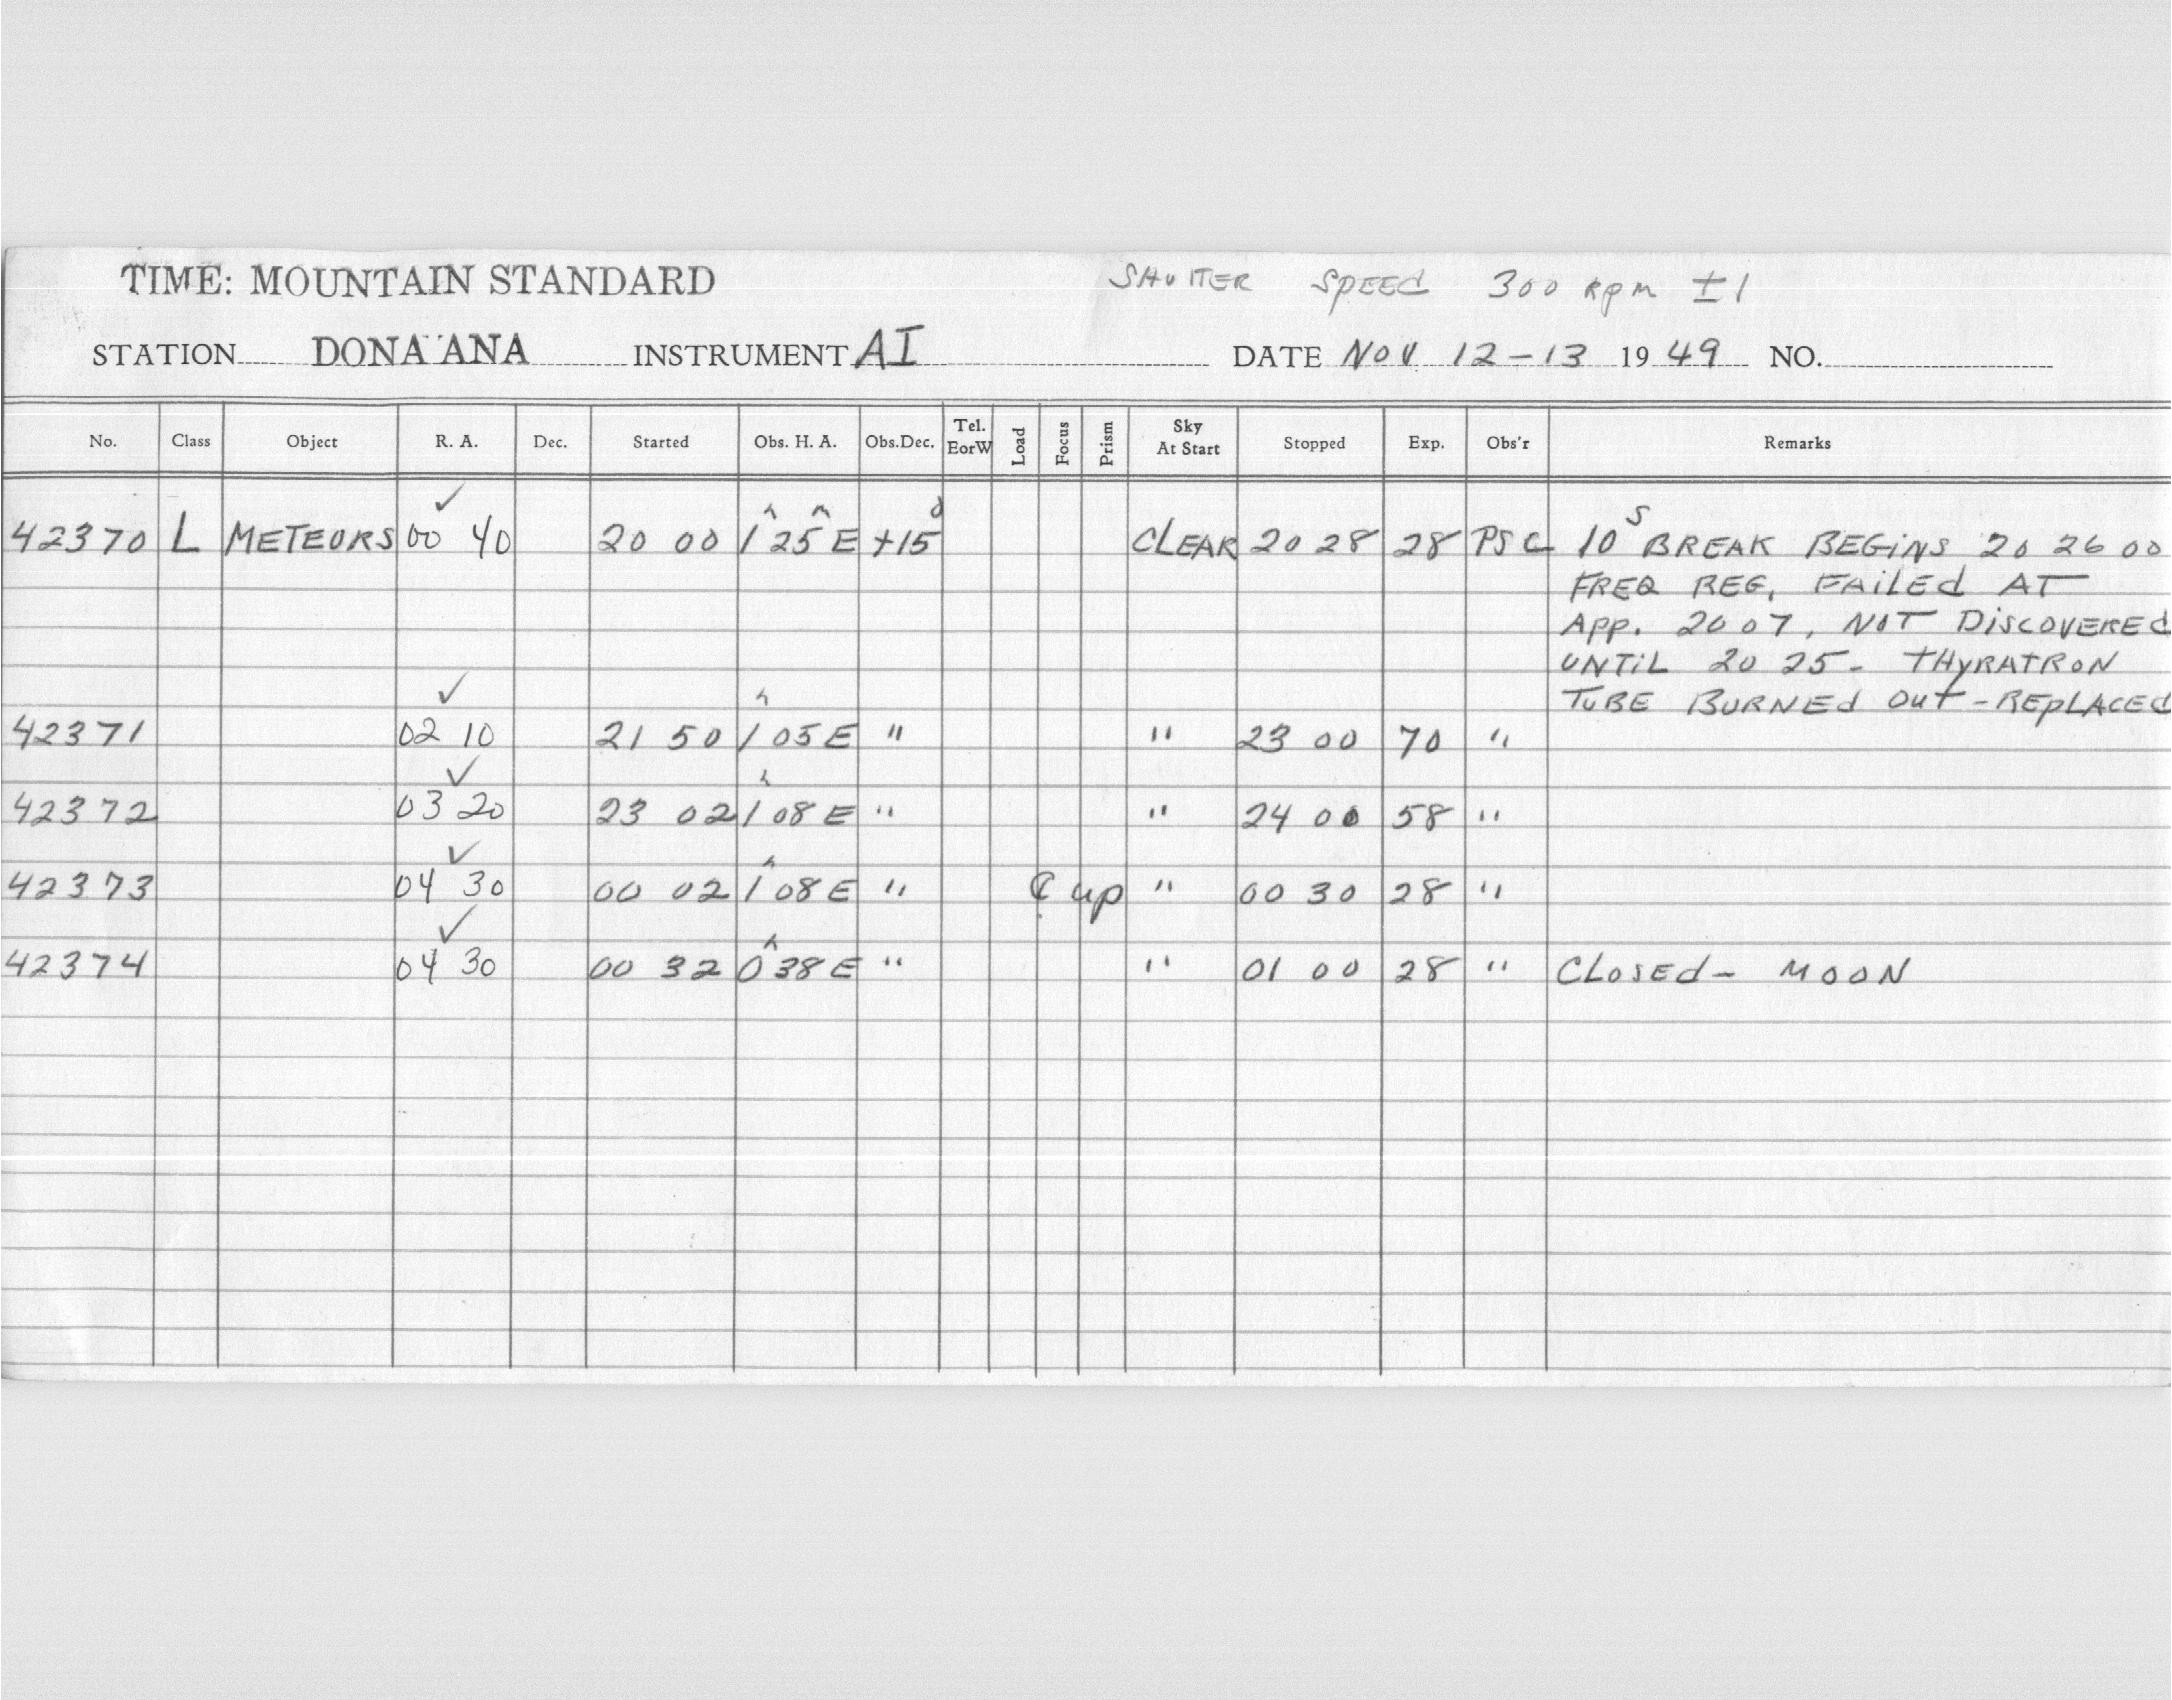 TIME: MOUNTAIN STANDARD SHUTTER SPEED 300 RPM ±1
STATION DONA ANA INSTRUMENT AI DATE NOV 12-13 1949 NO.
No. Class Object R. A. Dec. Started Obs. H. A. Obs.Dec. Tel. EorW Load Focus Prism Sky At Start Stopped Exp. Obs'r Remarks
42370 L METEORS 00 40 ✓ 20 00 1ʰ 25ᵐ E +15° CLEAR 20 28 28 PSC 10ˢ BREAK BEGINS 20 26 00
FREQ REG. FAILED AT
APP. 2007, NOT DISCOVERED
UNTIL 20 25 - THYRATRON
TUBE BURNED OUT - REPLACED
42371 02 10 ✓ 21 50 1ʰ 05 E " " 23 00 70 "
42372 03 20 ✓ 23 02 1ʰ 08 E " " 24 00 58 "
42373 04 30 ✓ 00 02 1ʰ 08 E " ☾ up " 00 30 28 "
42374 04 30 ✓ 00 32 0ʰ 38 E " " 01 00 28 " CLOSED - MOON